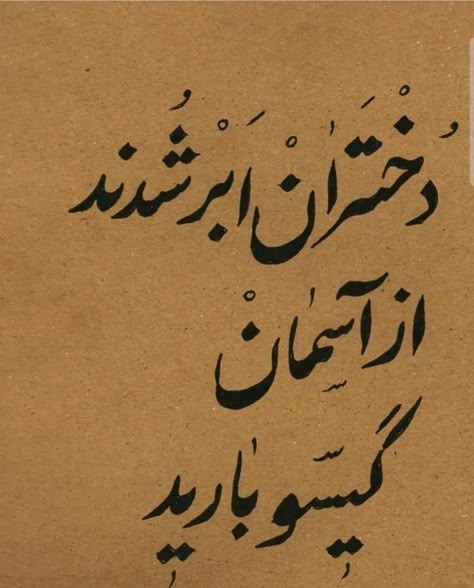 دُخْتَرانْ اَبْر شُدند
از آسمانْ
گیسو بارید